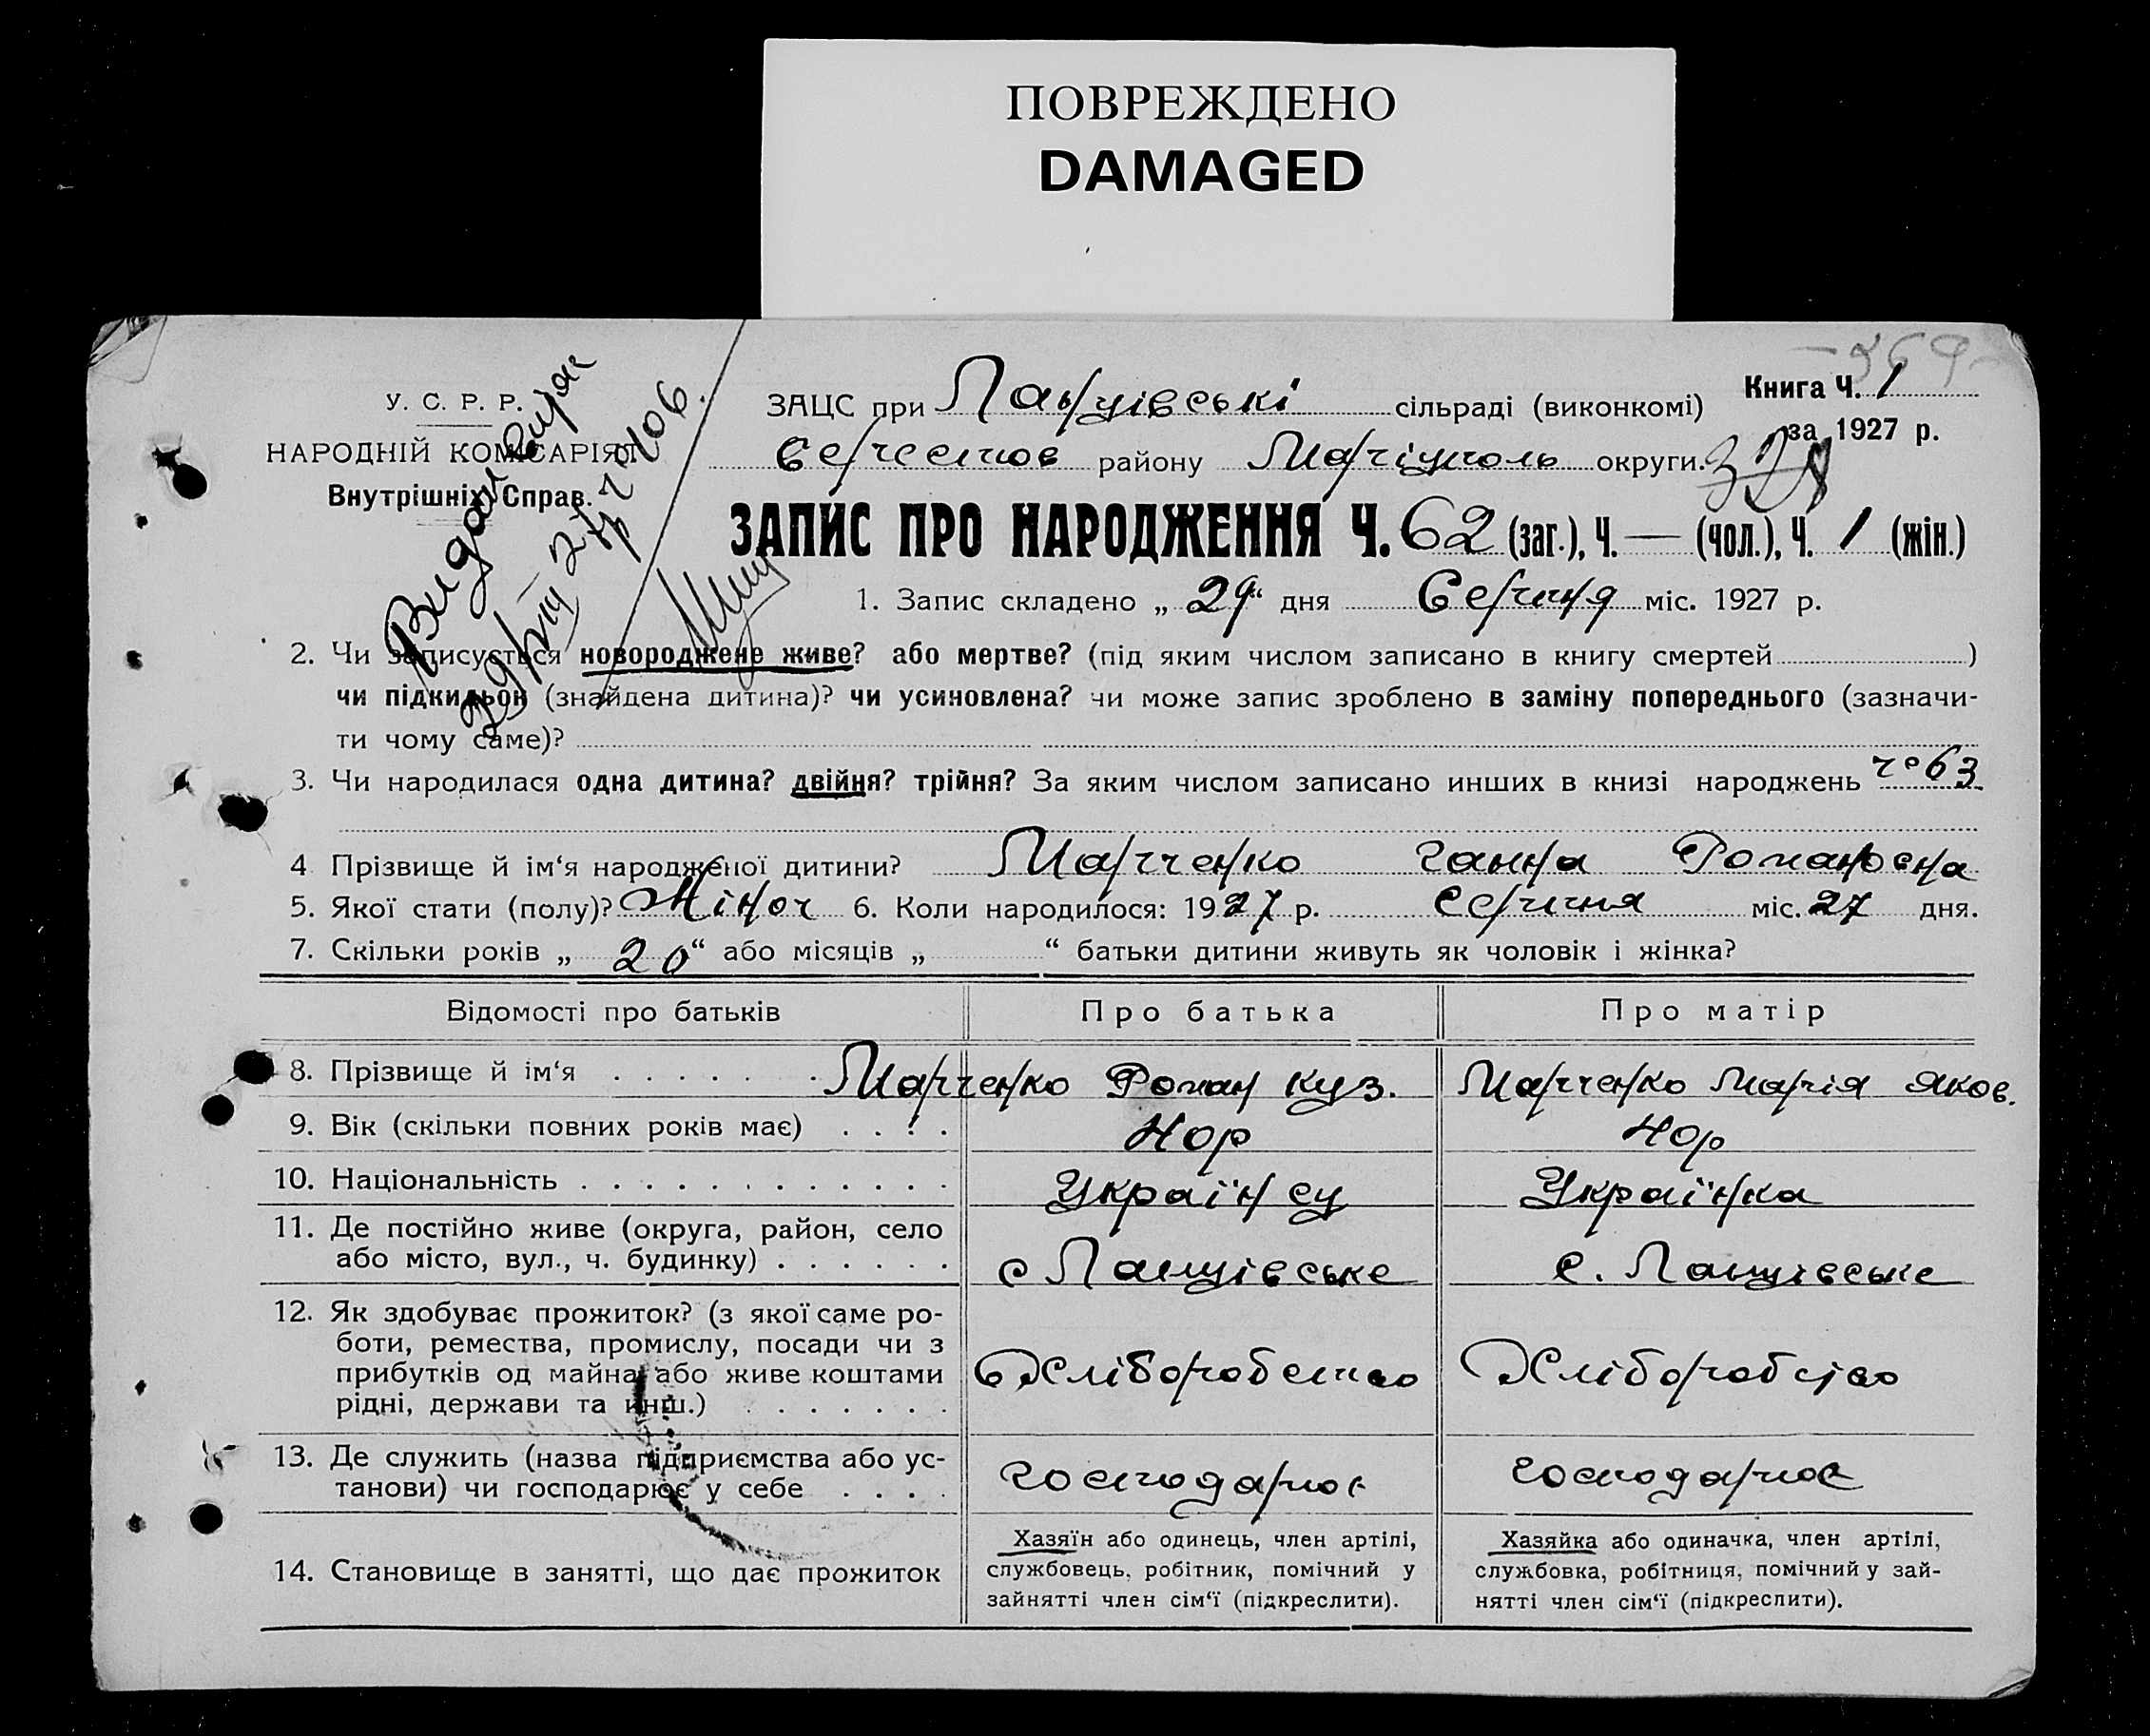 ПОВРЕЖДЕНО
DAMAGED
У. С. Р. Р.
НАРОДНІЙ КОМІСАРІЯТ
Внутрішніх Справ.
Видан
ЗАЦС при сільраді (виконкомі)
Книга Ч. 1
району Маріюполь округи.
за 1927 р.
ЗАПИС ПРО НАРОДЖЕННЯ Ч. 62 (заг.), Ч. — (чол.), Ч. 1 (жін.)
1. Запис складено „ 29 “ дня Серпня міс. 1927 р.
2. Чи записується новороджене живе? або мертве? (під яким числом записано в книгу смертей )
чи підкидьок (знайдена дитина)? чи усиновлена? чи може запис зроблено в заміну попереднього (зазначи-
ти чому саме)?
3. Чи народилася одна дитина? двійня? трійня? За яким числом записано инших в книзі народжень 63
4 Прізвище й ім‘я народженої дитини? Марченко Ганна Романовна
5. Якої стати (полу)? Жіноч 6. Коли народилося: 1927 р. Серпня міс. 27 дня.
7. Скільки років „ 20 “ або місяців „ “ батьки дитини живуть як чоловік і жінка?
Відомості про батьків Про батька Про матір
8. Прізвище й ім‘я . . . . . . . Марченко Роман Куз. Марченко Марія Яков.
9. Вік (скільки повних років має) . . . . 40р 40р
10. Національність . . . . . . . . . . . . . Українец Українка
11. Де постійно живе (округа, район, село
або місто, вул., ч. будинку) . . . . . . с с.
12. Як здобуває прожиток? (з якої саме ро-
боти, ремества, промислу, посади чи з
прибутків од майна або живе коштами
рідні, держави та инш.) . . . . . . . Хліборобство Хліборобство
13. Де служить (назва підприємства або ус-
танови) чи господарює у себе . . . . господарює господарює
14. Становище в занятті, що дає прожиток
Хазяїн або одинець, член артілі,
службовець, робітник, помічний у
зайнятті член сім‘ї (підкреслити).
Хазяйка або одиначка, член артілі,
службовка, робітниця, помічний у зай-
нятті член сім‘ї (підкреслити).